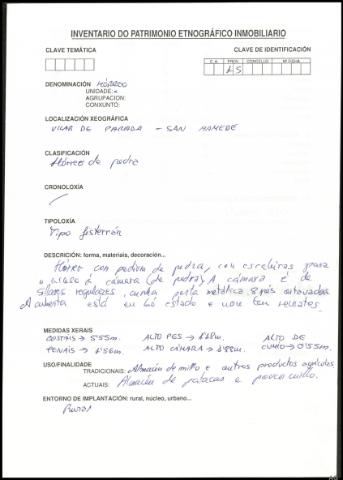 INVENTARIO DO PATRIMONIO ETNOGRÁFICO INMOBILIARIO
CLAVE TEMÁTICA CLAVE DE IDENTIFICACIÓN
C.A. PROV. CONCELLO Nº FICHA
15
DENOMINACIÓN HÓRREO
UNIDADE: x
AGRUPACION:
CONXUNTO:
LOCALIZACIÓN XEOGRÁFICA
VILAR DE PARADA - SAN MAMEDE
CLASIFICACIÓN
Hórreo de pedra
CRONOLOXÍA
TIPOLOXÍA
Tipo fisterrán
DESCRICIÓN: forma, materiais, decoración...
Hórreo con pedra, con escaleiras para
o acceso á cámara (de pedra). A cámara é de
sillares regulares, cunha porta metálica
A cuberta está en bó estado e non ten remates.
MEDIDAS XERAIS
COSTAIS → 5'55m. ALTO PES → ALTO DE
PENAIS → 1'56m. ALTO CÁMARA → 1'88m. CUMIO → 0'55m.
USO/FINALIDADE
TRADICIONAIS: Almacén de millo e outros productos agrícolas
ACTUAIS: Almacén de patacas e pouco millo.
ENTORNO DE IMPLANTACIÓN: rural, núcleo, urbano...
RURAL